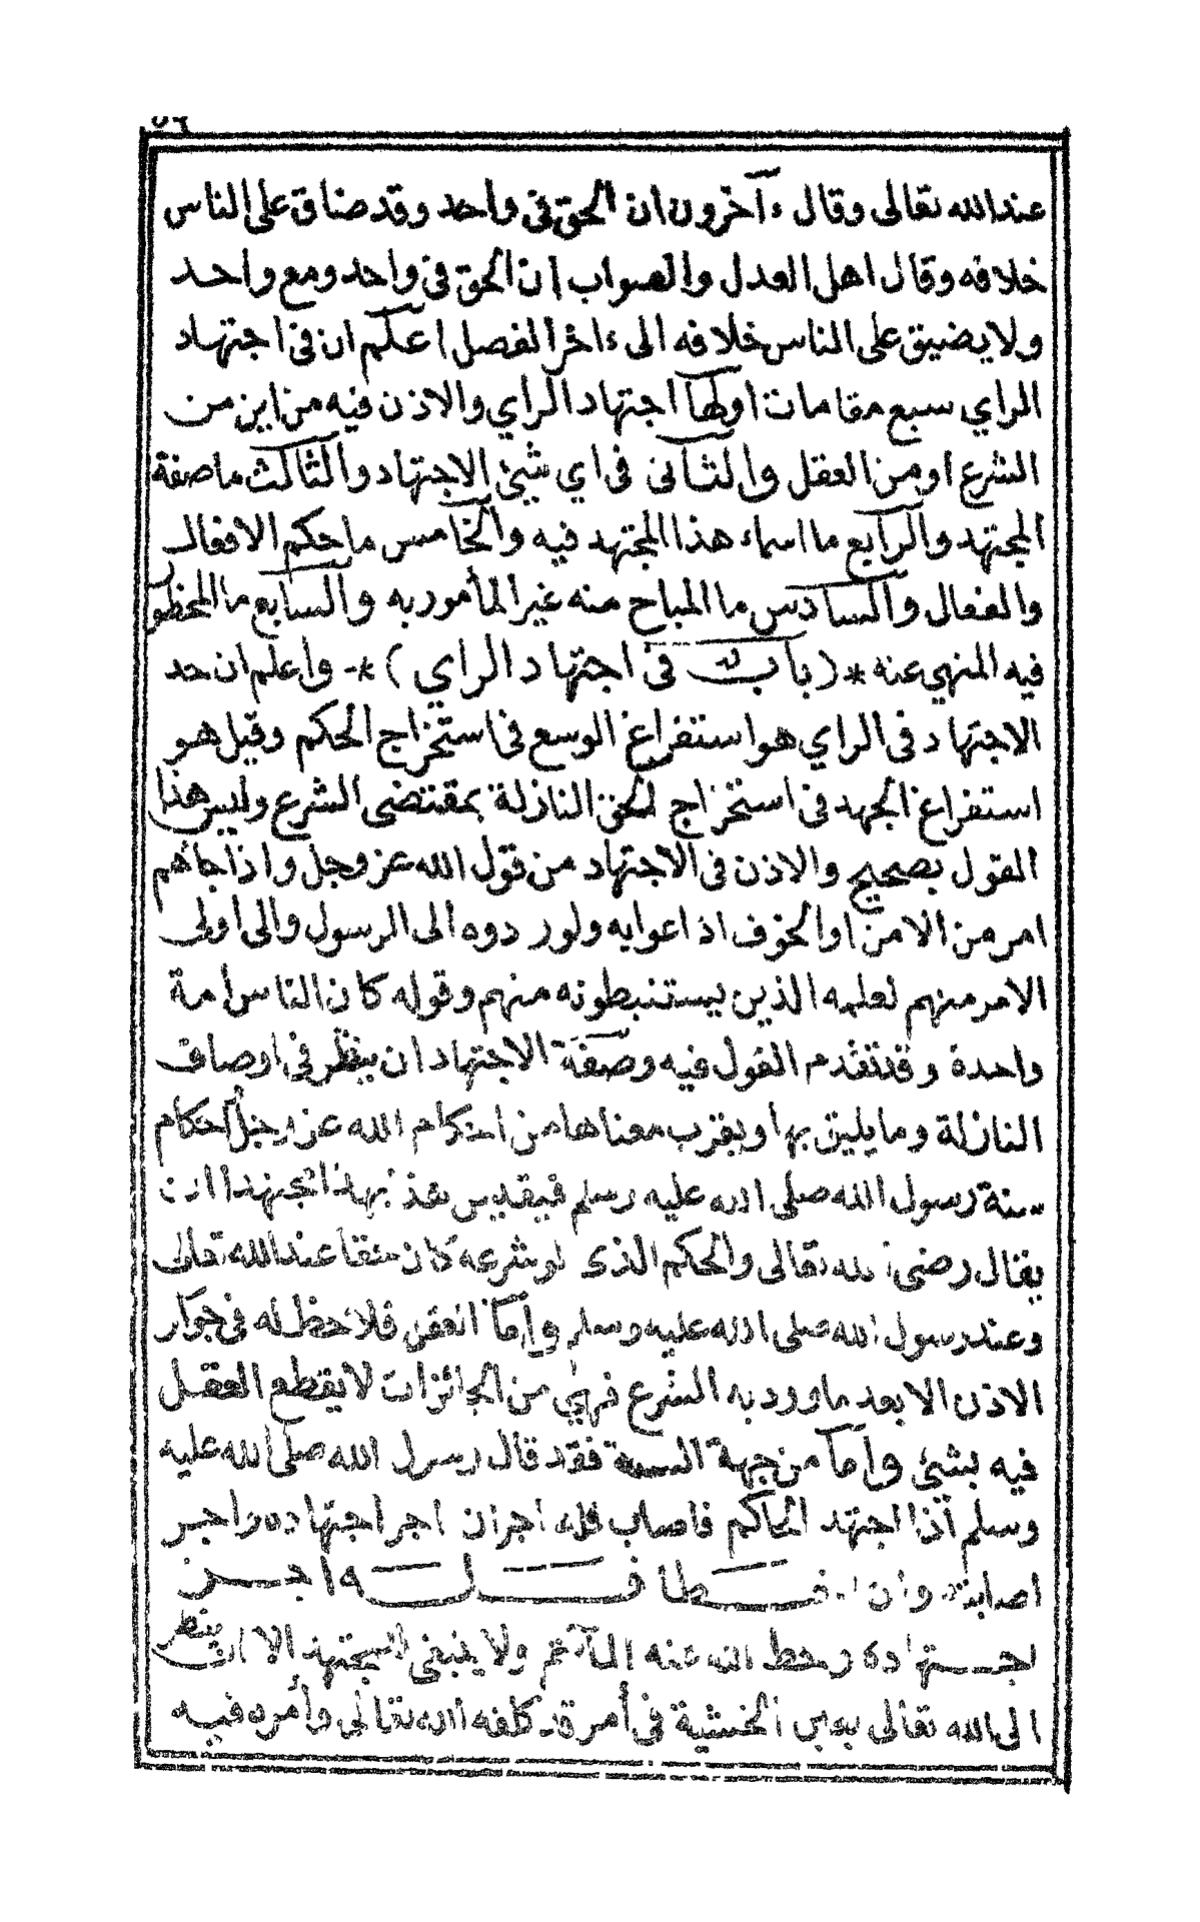 ٥٦
عند الله تعالى وقال ءآخرون ان الحق فى واحد وقد ضاق على الناس
خلافه وقال اهل العدل والصواب ان الحق فى واحد ومع واحد
ولا يضيق على الناس خلافه الى ءاخر الفصل اعلم ان فى اجتهاد
الراي سبع مقامات اولها اجتهاد الراي والاذن فيه من اين من
الشرع او من العقل والثانى فى اي شيئ الاجتهاد والثالث ما صفة
المجتهد والرابع ما اسماء هذا المجتهد فيه والخامس ما حكم الافعال
والفعال والسادس ما المباح منه غير المأمور به والسابع ما المحظور
فيه المنهي عنه * ( باب فى اجتهاد الراي ) * - واعلم ان حد
الاجتهاد فى الراي هو استفراغ الوسع فى استخراج الحكم وقيل هو
استفراغ الجهد فى استخراج الحق النازلة بمقتضى الشرع وليس هذا
القول بصحيح والاذن فى الاجتهاد من قول الله عز وجل واذا جاهم
امر من الامن او الخوف اذاعوا به ولو ردوه الى الرسول والى اولى
الامر منهم لعلمه الذين يستنبطونه منهم وقوله كان الناس امة
واحدة وقد تقدم القول فيه وصفة الاجتهاد ان ينظر فى اوصاف
النازلة وما يليق بها ويقرب معناها من احكام الله عز وجل احكام
سنة رسول الله صلى الله عليه وسلم فيقديس بهذا المجتهد
يقال رضى الله تعالى والحكم الذى لو شرعه كان حقا عند الله تعالى
وعند رسول الله صلى الله عليه وسلم وأما العقل فلا حظ له فى جواز
الاذن الا بعد ما ورد به الشرع فهي من الجائزات لا يقطع العقل
فيه بشئ وأما من جهة السنة فقد قال رسول الله صلى الله عليه
وسلم اذا اجتهد الحاكم فاصاب فله اجران اجر اجتهاده واجر
اصابته وان اخطا فله اجر
اجتهاده وحط الله عنه المأثم ولا ينبغى للمجتهد الا ان ينظر
الى الله تعالى بعين الخشية فى أمر قد كلفه الله تعالى وأمره فيه